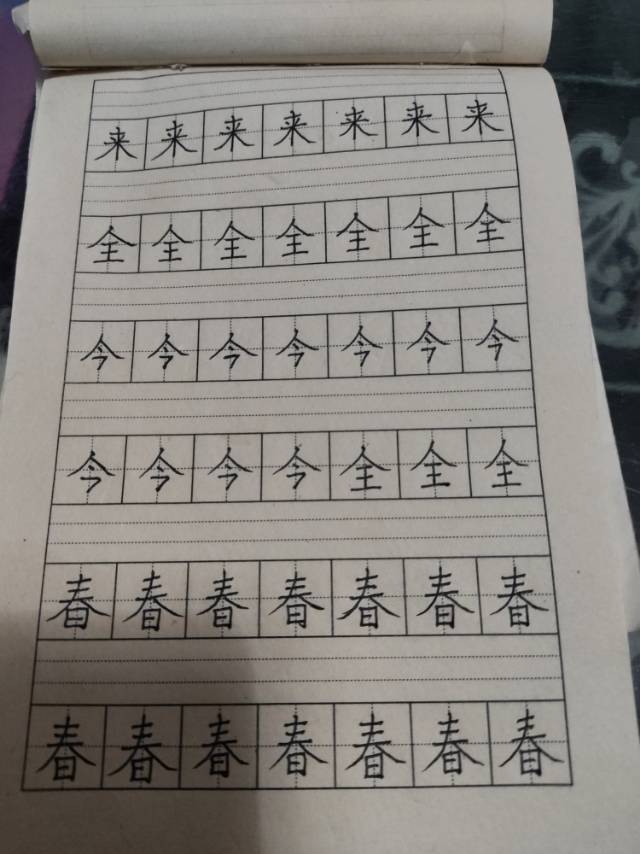 来来来来来来来
全全全全全全全
今今今今今今今
今今今今全全全
春春春春春春春
春春春春春春春